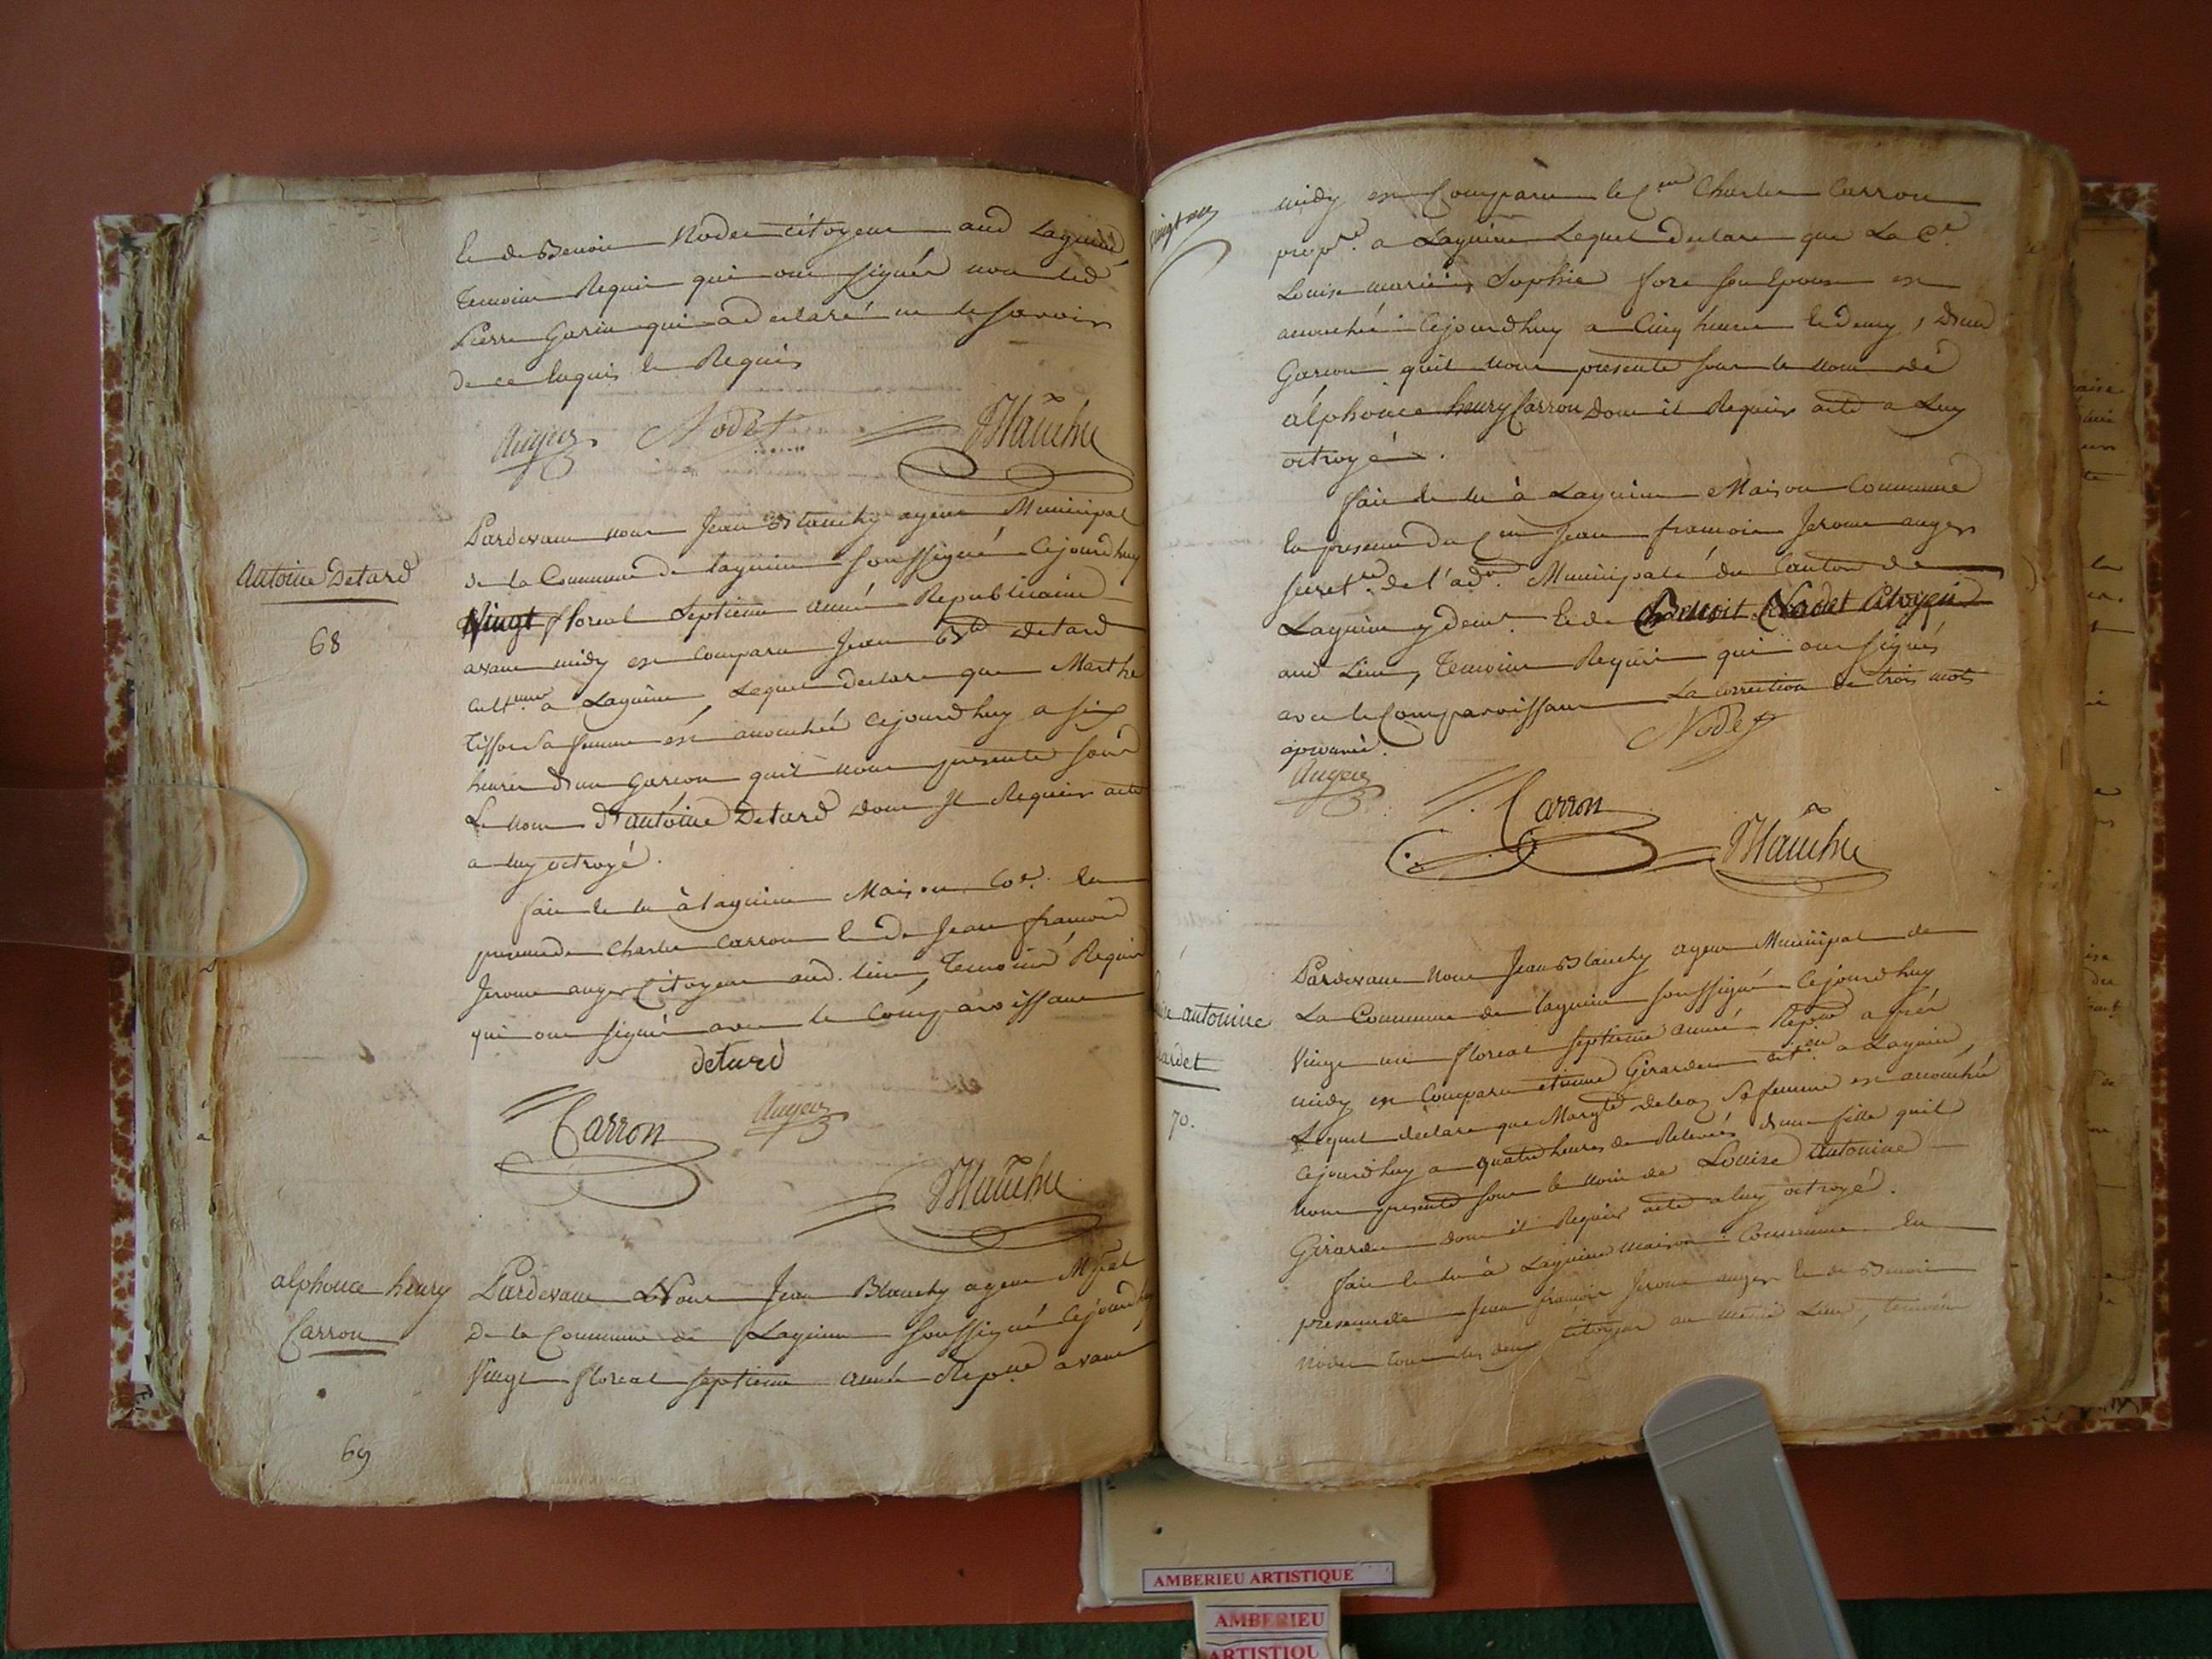 et de Benoit Nodet citoyens aud Lagnieu
temoins Requis qui ont signés non led
Pierre Garin qui a déclaré ne le savoir
de ce Enquis et Requis
Auger Nodet JBlanchy
Antoine Detard
68
Pardevant nous Jean Blanchy agent Municipal
de la Commune de Lagnieu soussigné Cejourdhuy
Vingt floreal Septieme année Republicaine
avant midy est Comparu Jean Bte Detard
cultiveur a Lagnieu, Lequel declare que Marthe
Tissot Sa femme est accouchée Cejourdhuy a six
heures d'un Garcon quil nous presente sous
Le nom d'antoine Detard dont Il Requier acte
a luy octroyé.
fait et lu à Lagnieu Maison Coe. En
presence de Charles Carron et de Jean francois
Jerome auger Citoyens aud. lieu, Temoins Requis
qui ont signés avec le Comparoissant
detard
Carron Auger
JBlanchy
alphonce henry
Carron
69
Pardevant Nous Jean Blanchy agent Mpal
De la Commune de Lagnieu soussigné Cejourdhuy
Vingt floreal septieme année Repne avant
vingt un
midy est Comparu le Cen Charles Carron
propre. a Lagnieu Lequel declare que La Ce.
Louise marie Sophie fore son Epouse est
accouchée Cejourdhuy a Cinq heures et demy, d'un
Garcon quil nous presente sous le nom de
alphonce henry Carron dont il Requier acte a Luy
octroyé.
fait et lu à Lagnieu Maison Commune
En presence du Cen Jean francois Jerome auger
secretre. de l'adon. Municipale du Canton de
Lagnieu y demt. et de Benoit Nodet Citoyen
aud Lieu, Temoins Requis qui ont signés
avec le Comparoissant La Correction de trois mots
aprouvée.
Nodet
Auger
Carron
JBlanchy
antoine
70.
Pardevant Nous Jean Blanchy agent Municipal de
La Commune de Lagnieu soussigné Cejourdhuy
Vingt un floreal septieme année Repne après
midy est Comparu etienne Girardet citen a Lagnieu,
Lequel declare que Margte Sa femme est accouchée
Cejourdhuy a quatre heures de Relevée d'une fille quil
nous presente sous le nom de Louise Antoinine
Girardet dont il Requier acte a luy octroyé.
fait et lu à Lagnieu maison Commune En
presence de Jean francois Jerome auger et de Benoit
Nodet tous les deux citoyens au même Lieu, temoins
AMBERIEU ARTISTIQUE
AMBERIEU
ARTISTIQU